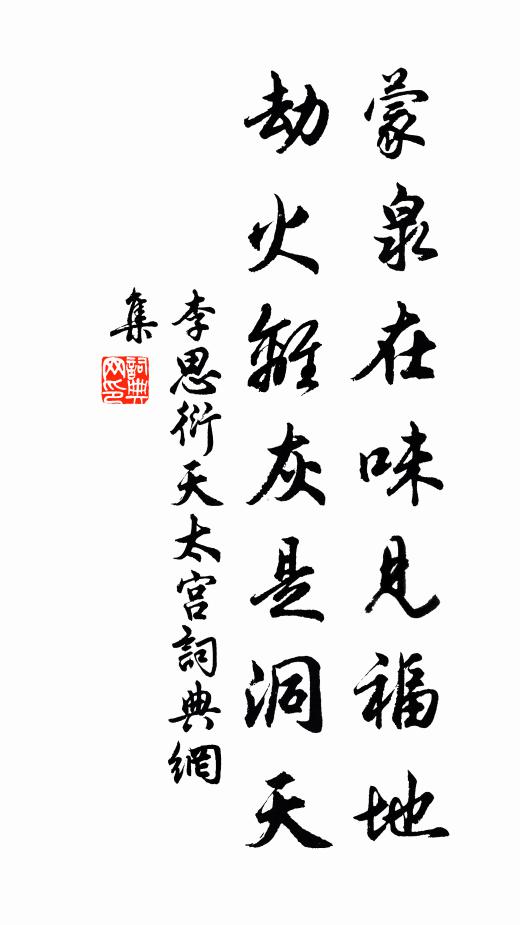 蒙泉在味見福地
劫火難灰是洞天
李思衍天太宮詞典網
集
詞典
网印